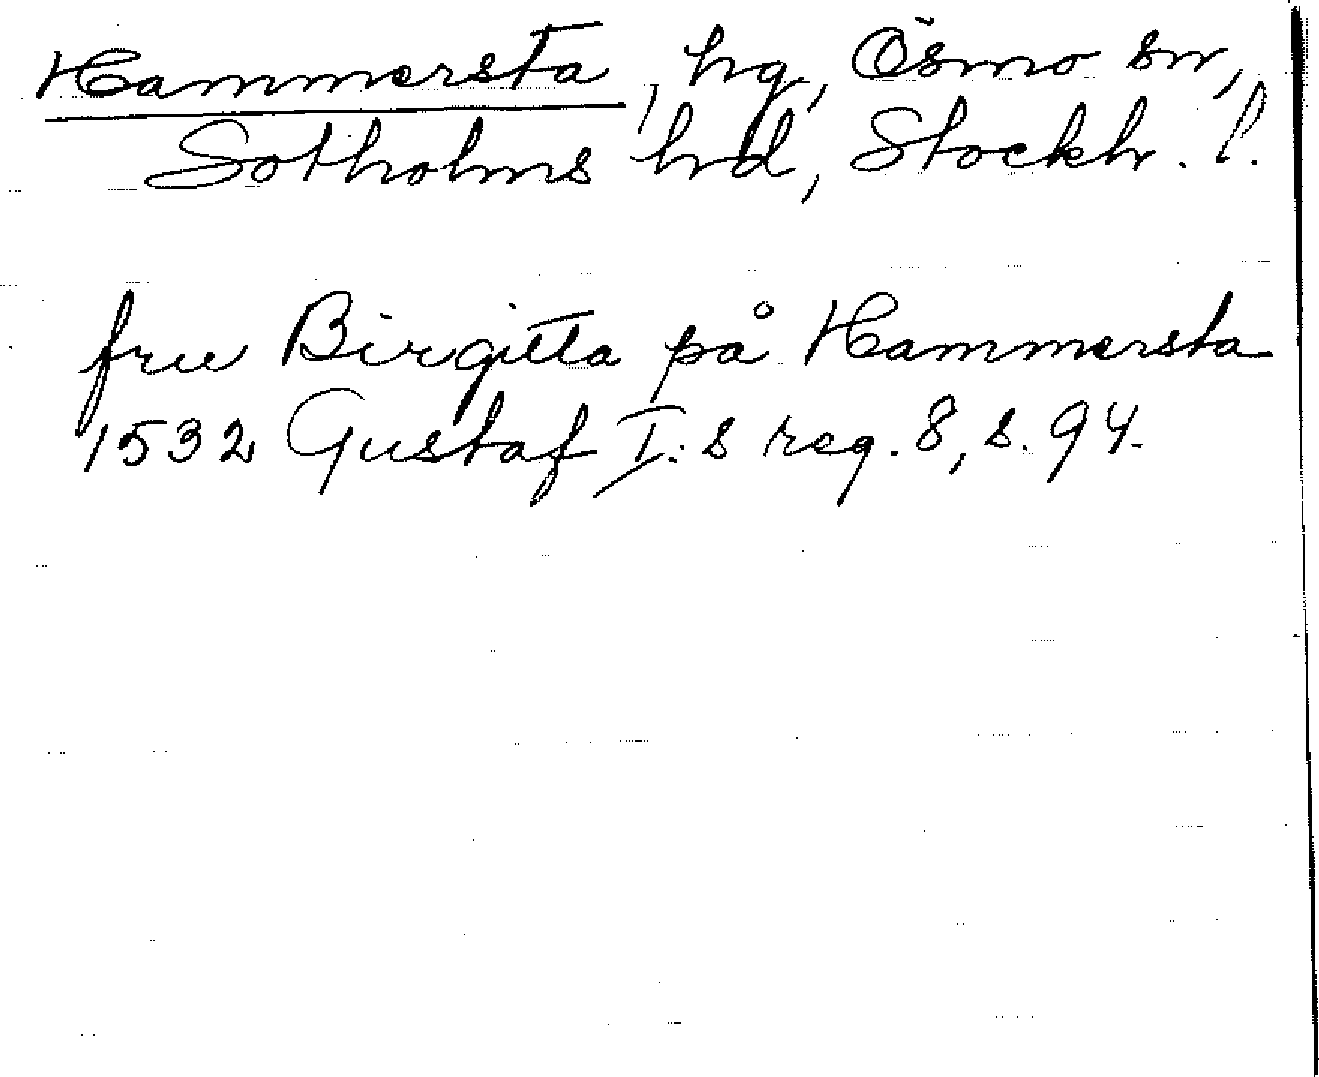 Hammersta, hg, Ösmo sn,
Sotholms hd, Stockh. l.
fru Birgitta på Hammersta
1532 Gustaf I:s reg. 8, s. 94.